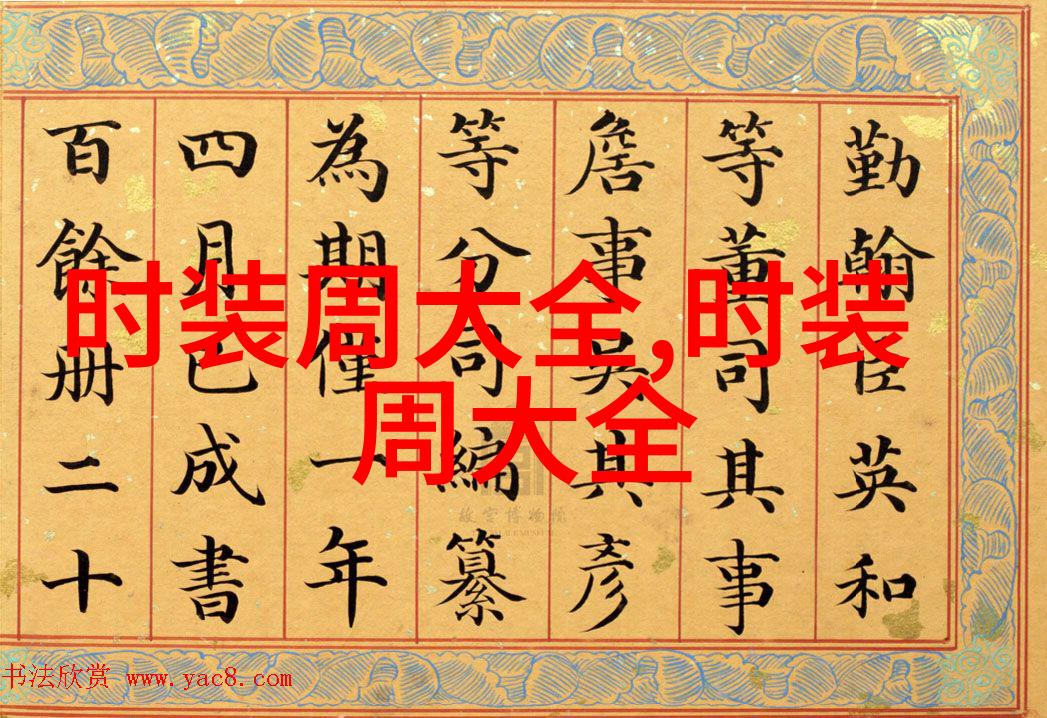 勤翰臣英和
等董司其事
詹事吳其彥
等分司編纂
為期僅一年
四月已成書
百餘册二十
时装周大全,时装
周大全
故宫博物院
书法欣赏 www.yac8.com